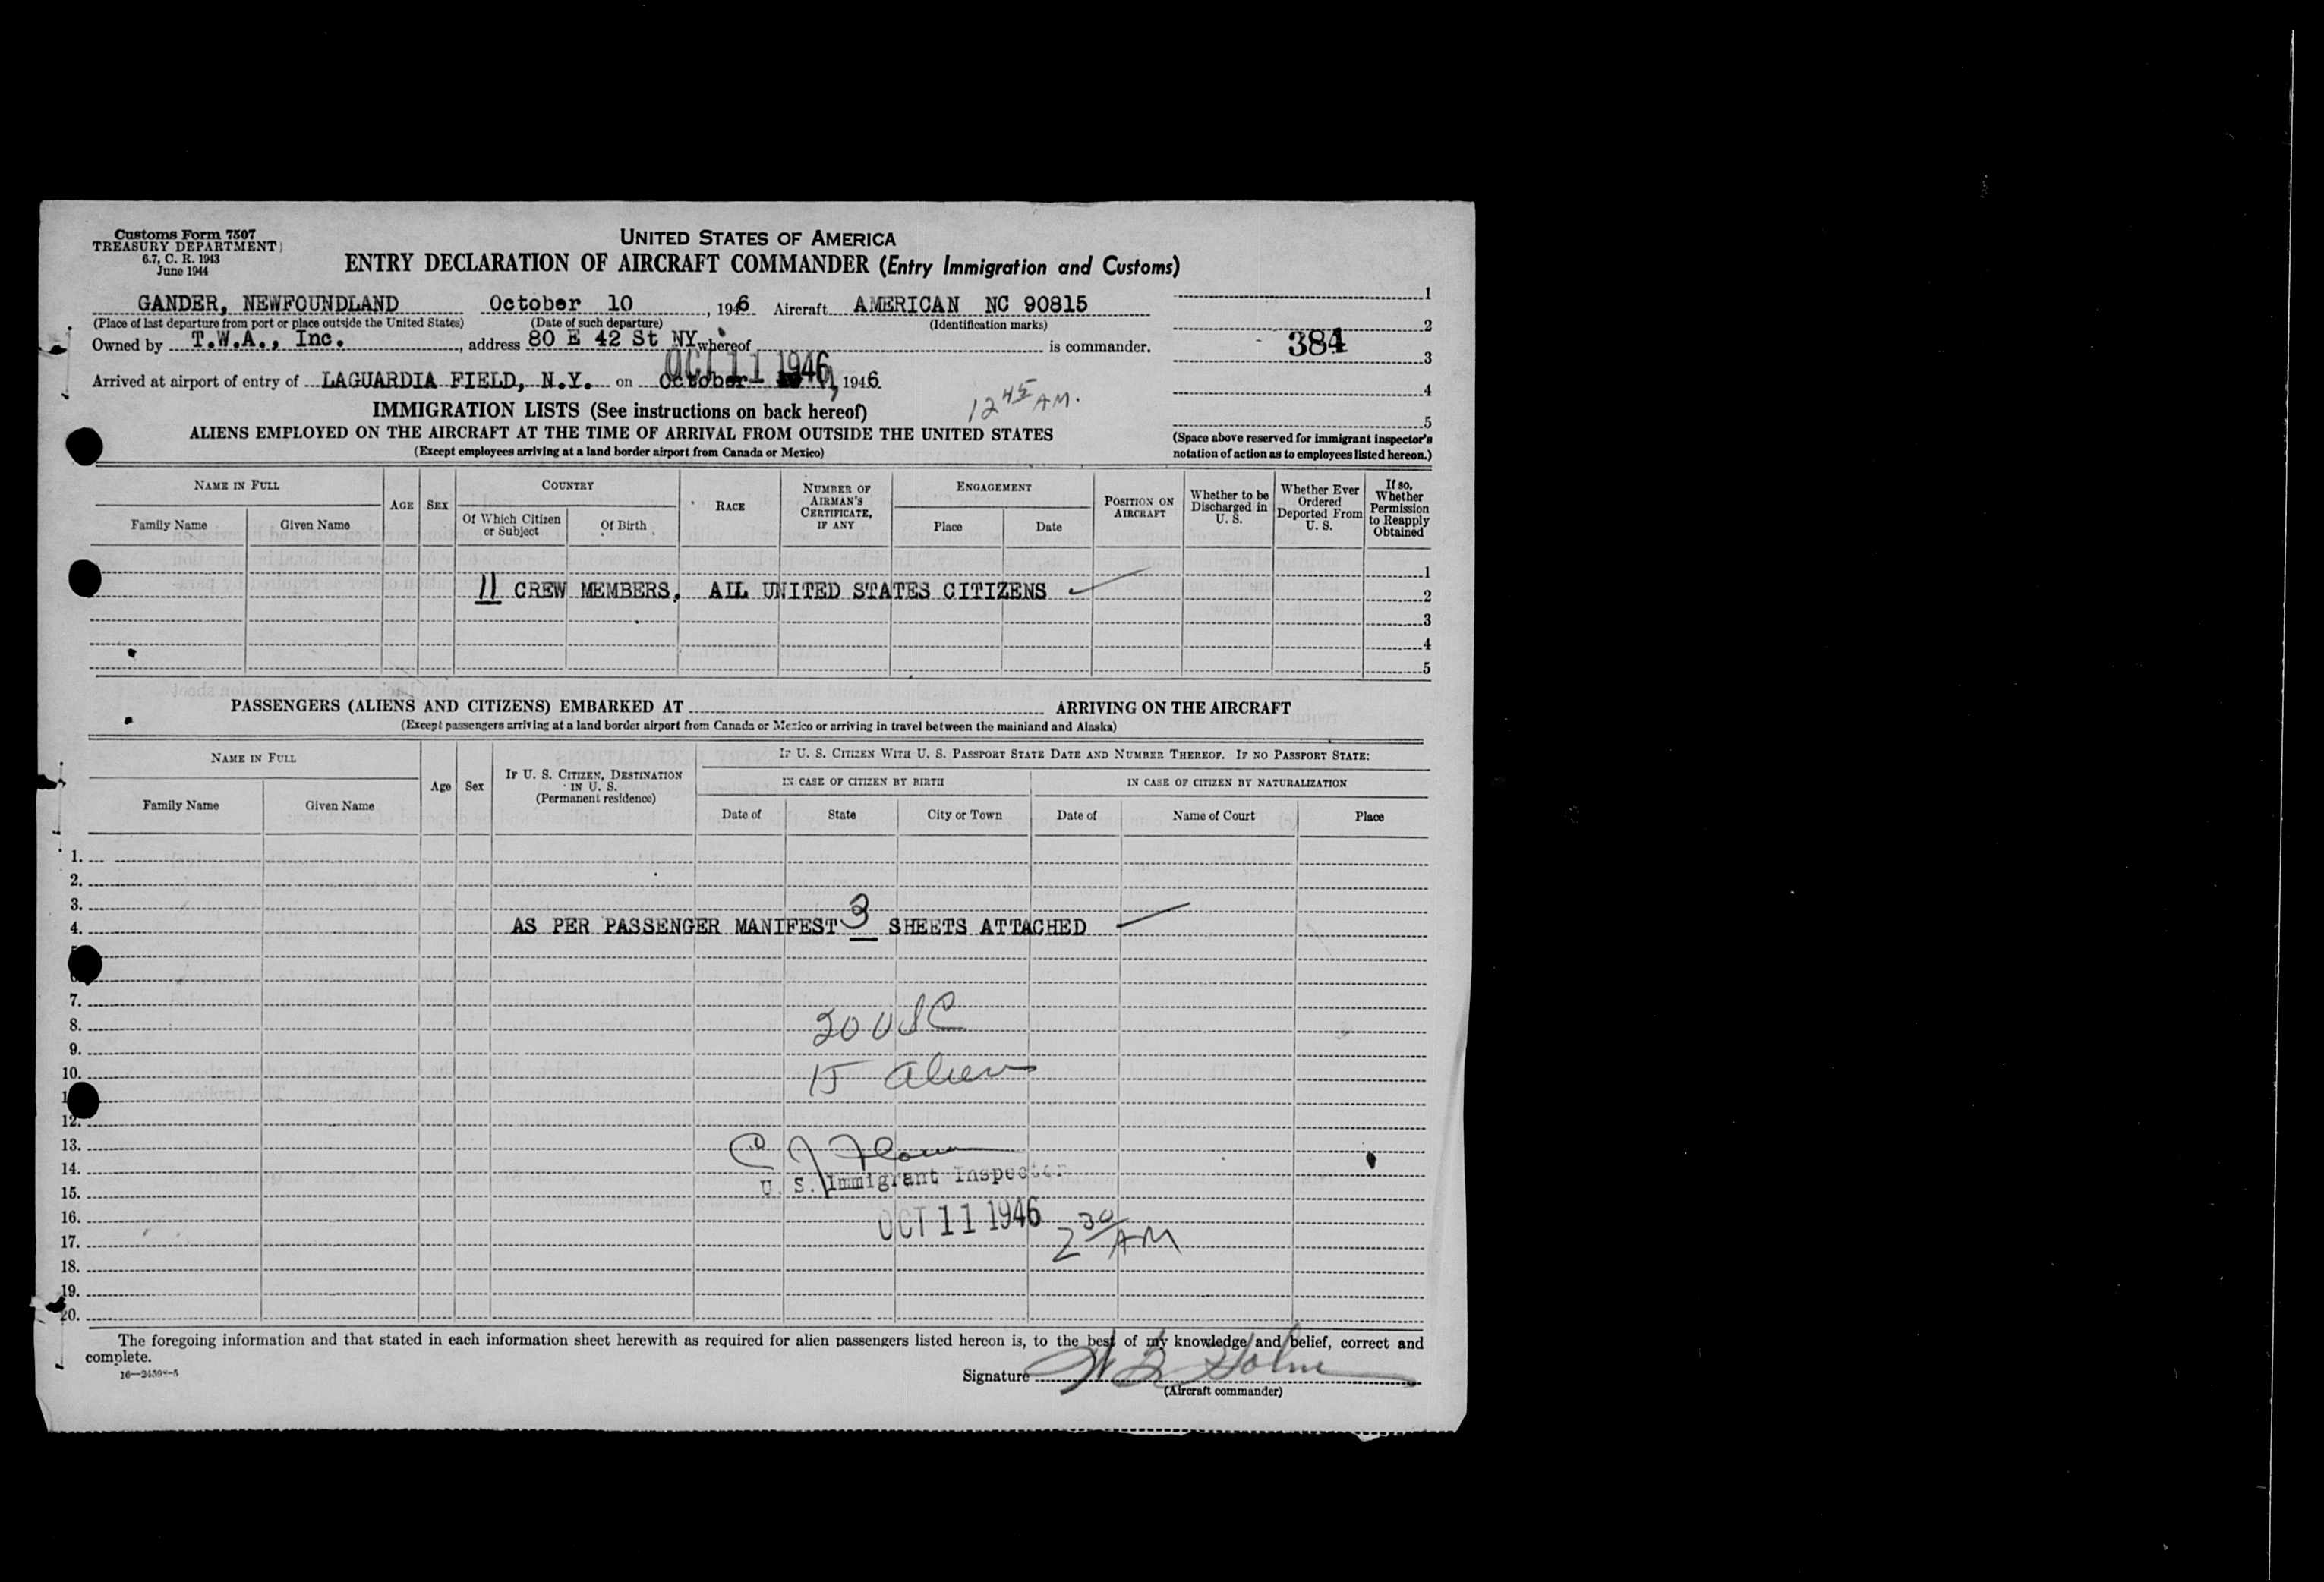 Customs Form 7507
TREASURY DEPARTMENT
6.7, C. R. 1943
June 1944
UNITED STATES OF AMERICA
ENTRY DECLARATION OF AIRCRAFT COMMANDER (Entry Immigration and Customs)
GANDER, NEWFOUNDLAND October 10, 1946 Aircraft AMERICAN NC 90815
(Place of last departure from port or place outside the United States) (Date of such departure) (Identification marks)
Owned by T.W.A., Inc., address 80 E 42 St NY whereof is commander.
Arrived at airport of entry of LAGUARDIA FIELD, N.Y. on October 11, 1946
OCT 11 1946
12 45 AM.
1
2
384
3
4
5
(Space above reserved for immigrant inspector's notation of action as to employees listed hereon.)
IMMIGRATION LISTS (See instructions on back hereof)
ALIENS EMPLOYED ON THE AIRCRAFT AT THE TIME OF ARRIVAL FROM OUTSIDE THE UNITED STATES
(Except employees arriving at a land border airport from Canada or Mexico)
NAME IN FULL
Family Name Given Name
AGE SEX
COUNTRY
Of Which Citizen or Subject Of Birth
RACE
NUMBER OF AIRMAN'S CERTIFICATE, IF ANY
ENGAGEMENT
Place Date
POSITION ON AIRCRAFT
Whether to be Discharged in U. S.
Whether Ever Ordered Deported From U. S.
If so, Whether Permission to Reapply Obtained
1
11 CREW MEMBERS, ALL UNITED STATES CITIZENS 2
3
4
5
PASSENGERS (ALIENS AND CITIZENS) EMBARKED AT ARRIVING ON THE AIRCRAFT
(Except passengers arriving at a land border airport from Canada or Mexico or arriving in travel between the mainland and Alaska)
NAME IN FULL
Family Name Given Name
Age Sex
IF U. S. CITIZEN, DESTINATION IN U. S.
(Permanent residence)
IF U. S. CITIZEN WITH U. S. PASSPORT STATE DATE AND NUMBER THEREOF. IF NO PASSPORT STATE:
IN CASE OF CITIZEN BY BIRTH IN CASE OF CITIZEN BY NATURALIZATION
Date of State City or Town Date of Name of Court Place
1.
2.
3.
4. AS PER PASSENGER MANIFEST 3 SHEETS ATTACHED
7.
8. 20 USC
9.
10. 15 alien
12.
13.
14.
U. S. Immigrant Inspector
15.
16. OCT 11 1946
17. 2 30 AM
18.
19.
20.
The foregoing information and that stated in each information sheet herewith as required for alien passengers listed hereon is, to the best of my knowledge and belief, correct and
complete.
Signature
(Aircraft commander)